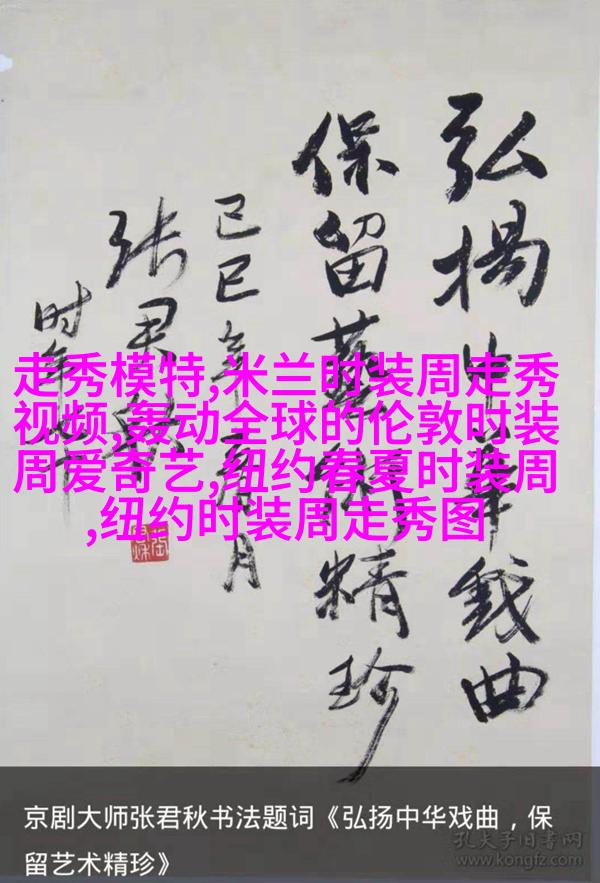 弘揚中華戏曲
保留藝術精珍
己巳年月
张君秋
时年
走秀模特,米兰时装周走秀
视频,轰动全球的伦敦时装
周爱奇艺,纽约春夏时装周
,纽约时装周走秀图
京剧大师张君秋书法题词《弘扬中华戏曲，保
留艺术精珍》
孔夫子旧书网
www.kongfz.com